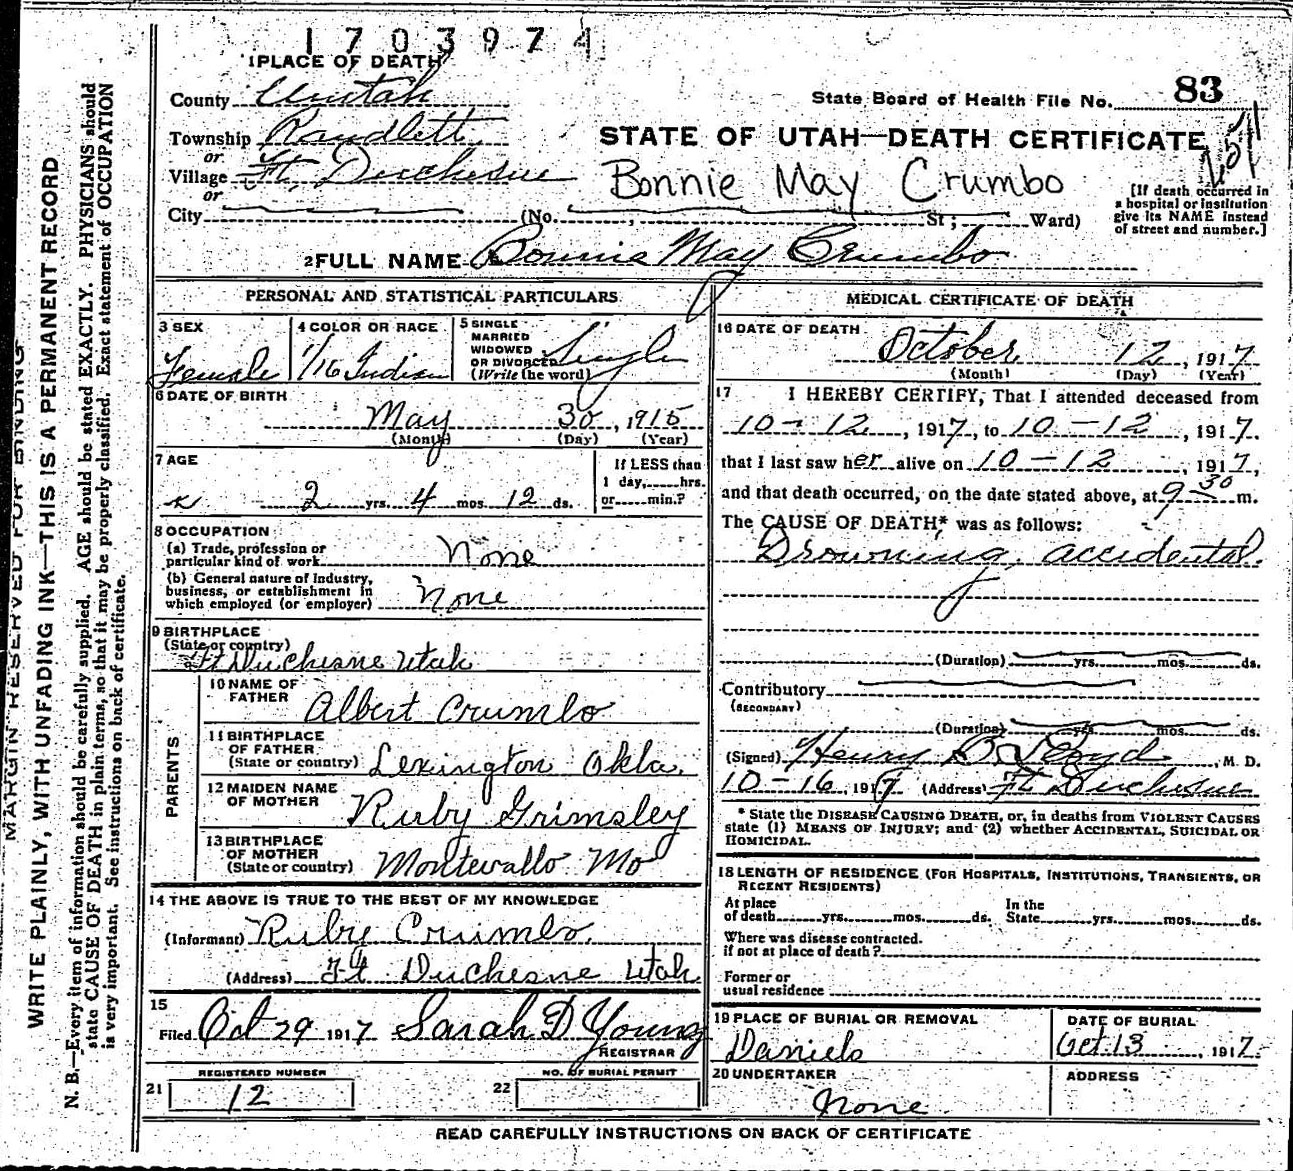 1703974
1 PLACE OF DEATH
County Uintah
State Board of Health File No. 83
Township Randlett
or
Village Ft. Duchesne
or
City (No. , St; Ward)
STATE OF UTAH—DEATH CERTIFICATE
Bonnie May Crumbo
[If death occurred in
a hospital or institution
give its NAME instead
of street and number.]
2 FULL NAME Bonnie May Crumbo
PERSONAL AND STATISTICAL PARTICULARS
3 SEX
Female
4 COLOR OR RACE
1/16 Indian
5 SINGLE
MARRIED
WIDOWED
OR DIVORCED
(Write the word)
Single
6 DATE OF BIRTH
May 30, 1915
(Month) (Day) (Year)
7 AGE
2 yrs. 4 mos. 12 ds.
If LESS than
1 day, hrs.
or min.?
8 OCCUPATION
(a) Trade, profession or
particular kind of work None
(b) General nature of Industry,
business, or establishment in
which employed (or employer) None
9 BIRTHPLACE
(State or country)
Ft Duchesne Utah
PARENTS
10 NAME OF
FATHER Albert Crumbo
11 BIRTHPLACE
OF FATHER
(State or country) Lexington Okla.
12 MAIDEN NAME
OF MOTHER Ruby Grimsley
13 BIRTHPLACE
OF MOTHER
(State or country) Montevallo Mo
14 THE ABOVE IS TRUE TO THE BEST OF MY KNOWLEDGE
(Informant) Ruby Crumbo.
(Address) Ft Duchesne Utah
15
Filed Oct 29 1917 Sarah D Young
REGISTRAR
REGISTERED NUMBER
21 12
NO. OF BURIAL PERMIT
22
MEDICAL CERTIFICATE OF DEATH
16 DATE OF DEATH
October 12, 1917
(Month) (Day) (Year)
17 I HEREBY CERTIFY, That I attended deceased from
10-12, 1917, to 10-12, 1917.
that I last saw her alive on 10-12, 1917,
and that death occurred, on the date stated above, at 9 30 m.
The CAUSE OF DEATH* was as follows:
Drowning, accidental.
(Duration) yrs. mos. ds.
Contributory
(SECONDARY)
(Duration) yrs. mos. ds.
(Signed) Henry B Lloyd, M. D.
10-16, 1917 (Address) Ft Duchesne
* State the DISEASE CAUSING DEATH, or, in deaths from VIOLENT CAUSES
state (1) MEANS OF INJURY; and (2) whether ACCIDENTAL, SUICIDAL OR
HOMICIDAL.
18 LENGTH OF RESIDENCE (FOR HOSPITALS, INSTITUTIONS, TRANSIENTS, OR
RECENT RESIDENTS)
At place
of death yrs. mos. ds.
In the
State yrs. mos. ds.
Where was disease contracted.
if not at place of death?
Former or
usual residence
19 PLACE OF BURIAL OR REMOVAL
Daniels
DATE OF BURIAL
Oct. 13, 1917.
20 UNDERTAKER
None
ADDRESS
READ CAREFULLY INSTRUCTIONS ON BACK OF CERTIFICATE
MARGIN RESERVED FOR BINDING
WRITE PLAINLY, WITH UNFADING INK—THIS IS A PERMANENT RECORD
N. B.—Every item of information should be carefully supplied. AGE should be stated EXACTLY. PHYSICIANS should
state CAUSE OF DEATH in plain terms, so that it may be properly classified. Exact statement of OCCUPATION
is very important. See instructions on back of certificate.